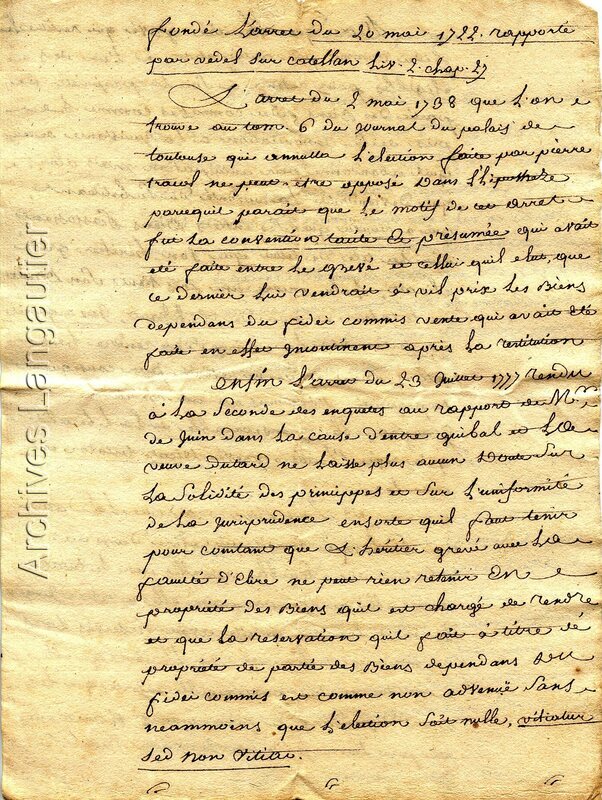 fondé L'arret du 20 mai 1722. rapporté
par vedel sur catellan Liv. 2 chap. 27
L'arret du 2 mai 1738 que L'on
trouve au tom. 6 du journal du palais de
toulouse qui annulla L'election faite par pierre
ne peut etre opposé Dans L'hipothese
parcequil parait que Le motif de cet arret
fut La convention tacite & présumée qui avait
eté faite entre Le grevé et cellui quil elut, que
ce dernier Lui vendrait à vil prix Les Biens
dependans du fidei commis vente qui avait eté
faite en effet incontinent après La restitution
enfin L'arret du 23 Juillet 1777 rendu
à La Seconde des enquetes au rapport de Mr.
de Juin dans La cause d'entre guibal et La
veuve dutard ne Laisse plus aucun Doute Sur
La Solidité des princippes et Sur L'uniformité
de La Jurisprudence ensorte quil faut tenir
pour constant que L'héritier grevé avec La
faculté d'Elire ne peut rien retenir En
propriété des Biens quil est chargé de rendre
et que La reservation quil fait à titre de
propriété de partie des Biens dependans Du
fidei commis est comme non advenüe Sans
neammoins que L'election Soit nulle, vitiatur
sed non vitiat.
Archives Langautier